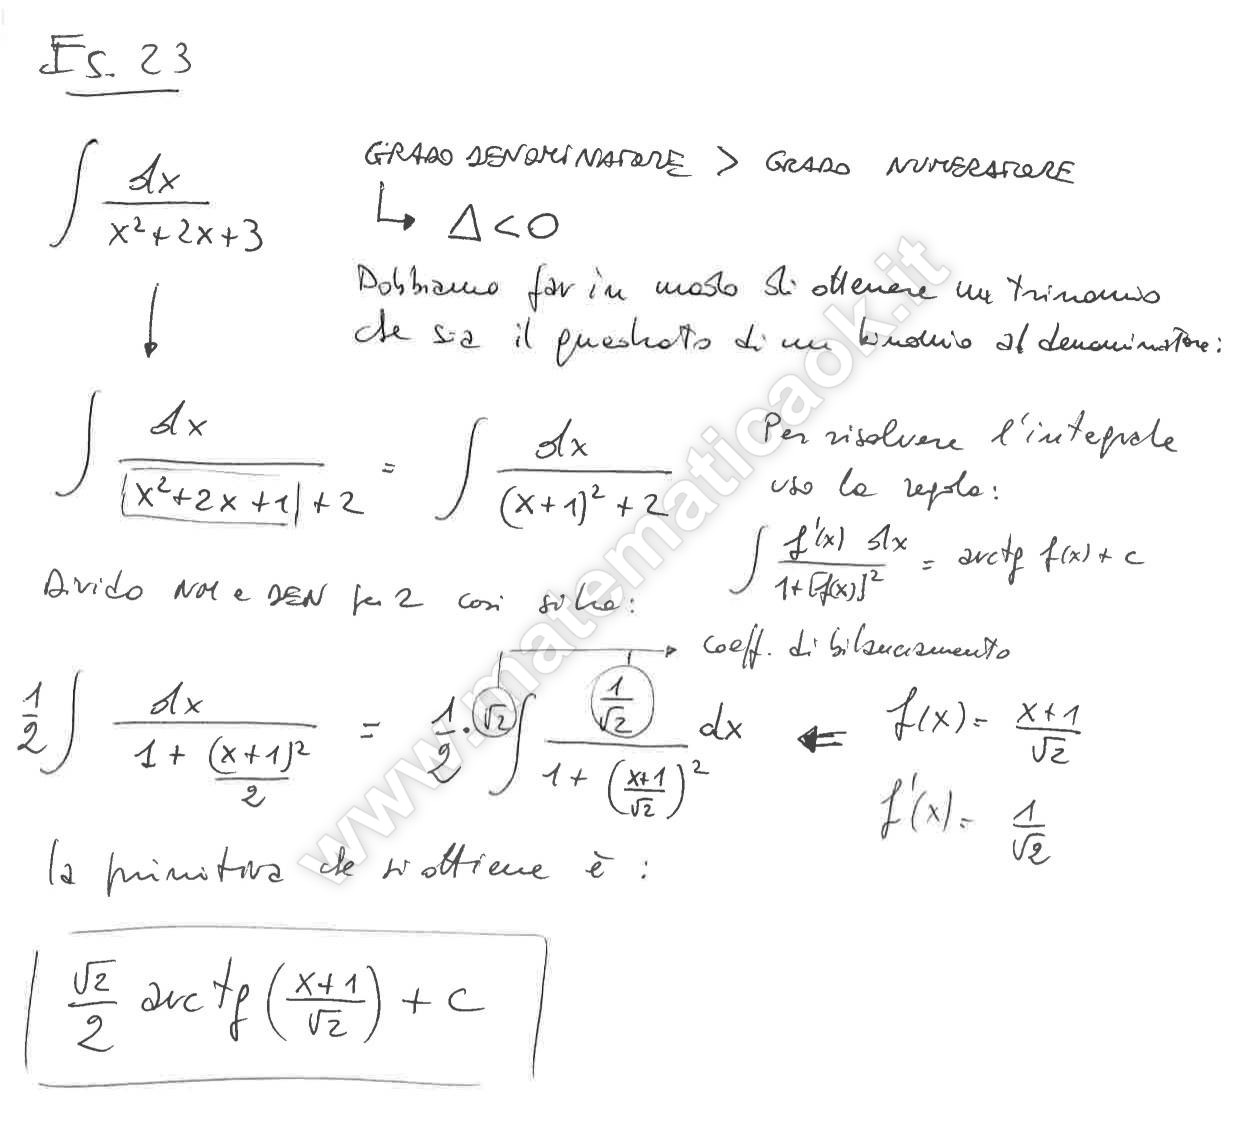 Es. 23
∫ dx / (x² + 2x + 3)
GRADO DENOMINATORE > GRADO NUMERATORE
↳ Δ < 0
Dobbiamo far in modo di ottenere un trinomio
che sia il quadrato di un binomio al denominatore:
∫ dx / (|x² + 2x + 1| + 2) = ∫ dx / ((x + 1)² + 2)
Per risolvere l'integrale
uso la regola:
∫ f'(x) dx / (1 + [f(x)]²) = arctg f(x) + c
Divido NUM e DEN per 2 così si ha:
coeff. di bilanciamento
1/2 ∫ dx / (1 + (x+1)²/2) = 1/2 · √2 ∫ (1/√2) / (1 + ((x+1)/√2)²) dx ⇐ f(x) = (x+1)/√2
f'(x) = 1/√2
la primitiva che si ottiene è :
√2/2 arctg ((x+1)/√2) + c
www.matematicaok.it